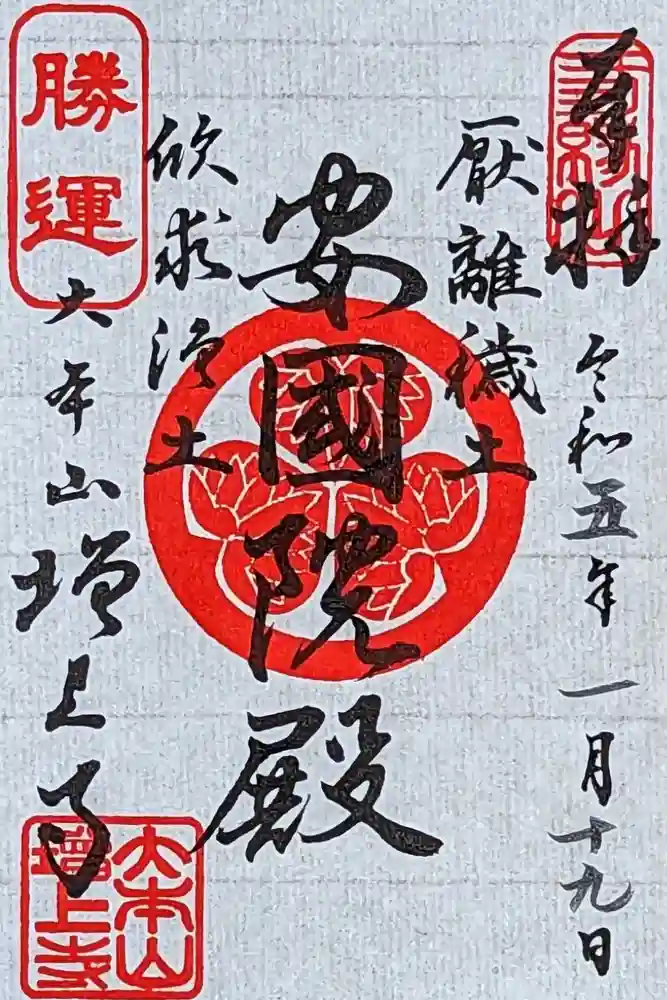 奉拝
令和五年一月十九日
厭離穢土
安國院殿
欣求浄土
勝運
大本山増上寺
大本山
増上寺